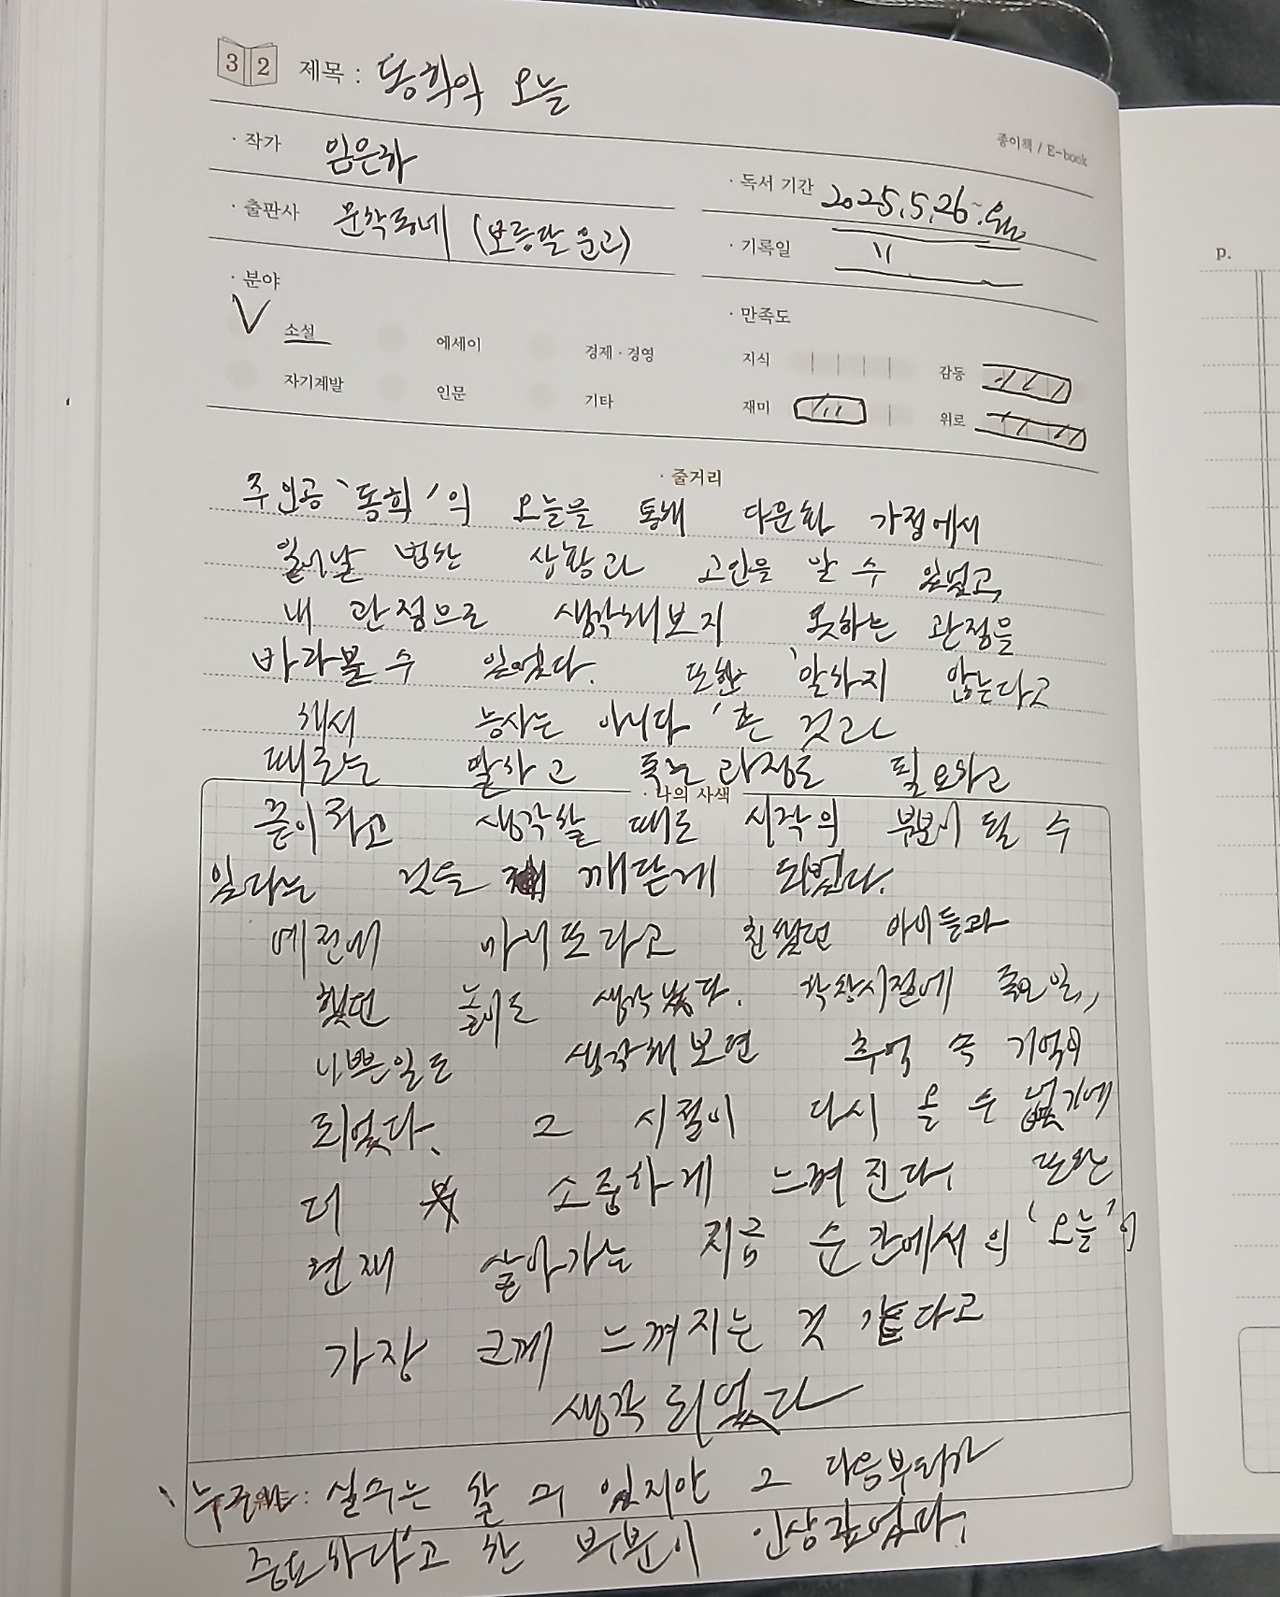 32 제목 : 동희의 오늘
종이책 / E-book
· 작가 임은하
· 독서 기간 2025.5.26~
· 출판사 문학동네 (보름달문고)
· 기록일 〃
· 분야
· 만족도
V 소설 에세이 경제 · 경영
지식 감동
자기계발 인문 기타
재미 위로
· 줄거리
주인공 '동희'의 오늘을 통해 다문화 가정에서
일어날 법한 상황과 고민을 알 수 있었고,
내 관점으로 생각해보지 못하는 관점을
바라볼 수 있었다. 또한 '말하지 않는다고
해서 능사는 아니다'란 것과
때로는 말하고 푸는 과정도 필요하고
· 나의 사색
끝이라고 생각할 때도 시작의 부분이 될 수
있다는 것을 깨닫게 되었다.
예전에 마니또라고 친했던 아이들과
했던 놀이도 생각났다. 학창시절에 좋은일,
나쁜일도 생각해보면 추억 속 기억이
되었다. 그 시절이 다시 올 수 없기에
더 소중하게 느껴진다. 또한
현재 살아가는 지금 순간에서의 '오늘'이
가장 크게 느껴지는 것 같다고
생각되었다
실수는 할 수 있지만 그 다음부터가
중요하다'고 한 부분이 인상깊었다.
p.